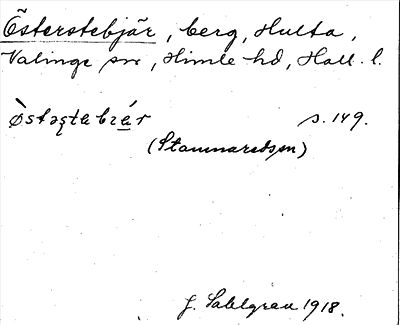 Österstebjär, berg, Hulta,
Valinge sn, Himle hd, Hall. l.
østəʂtabɪár s. 149.
(Stamnaredsm)
J. Sahlgren 1918.